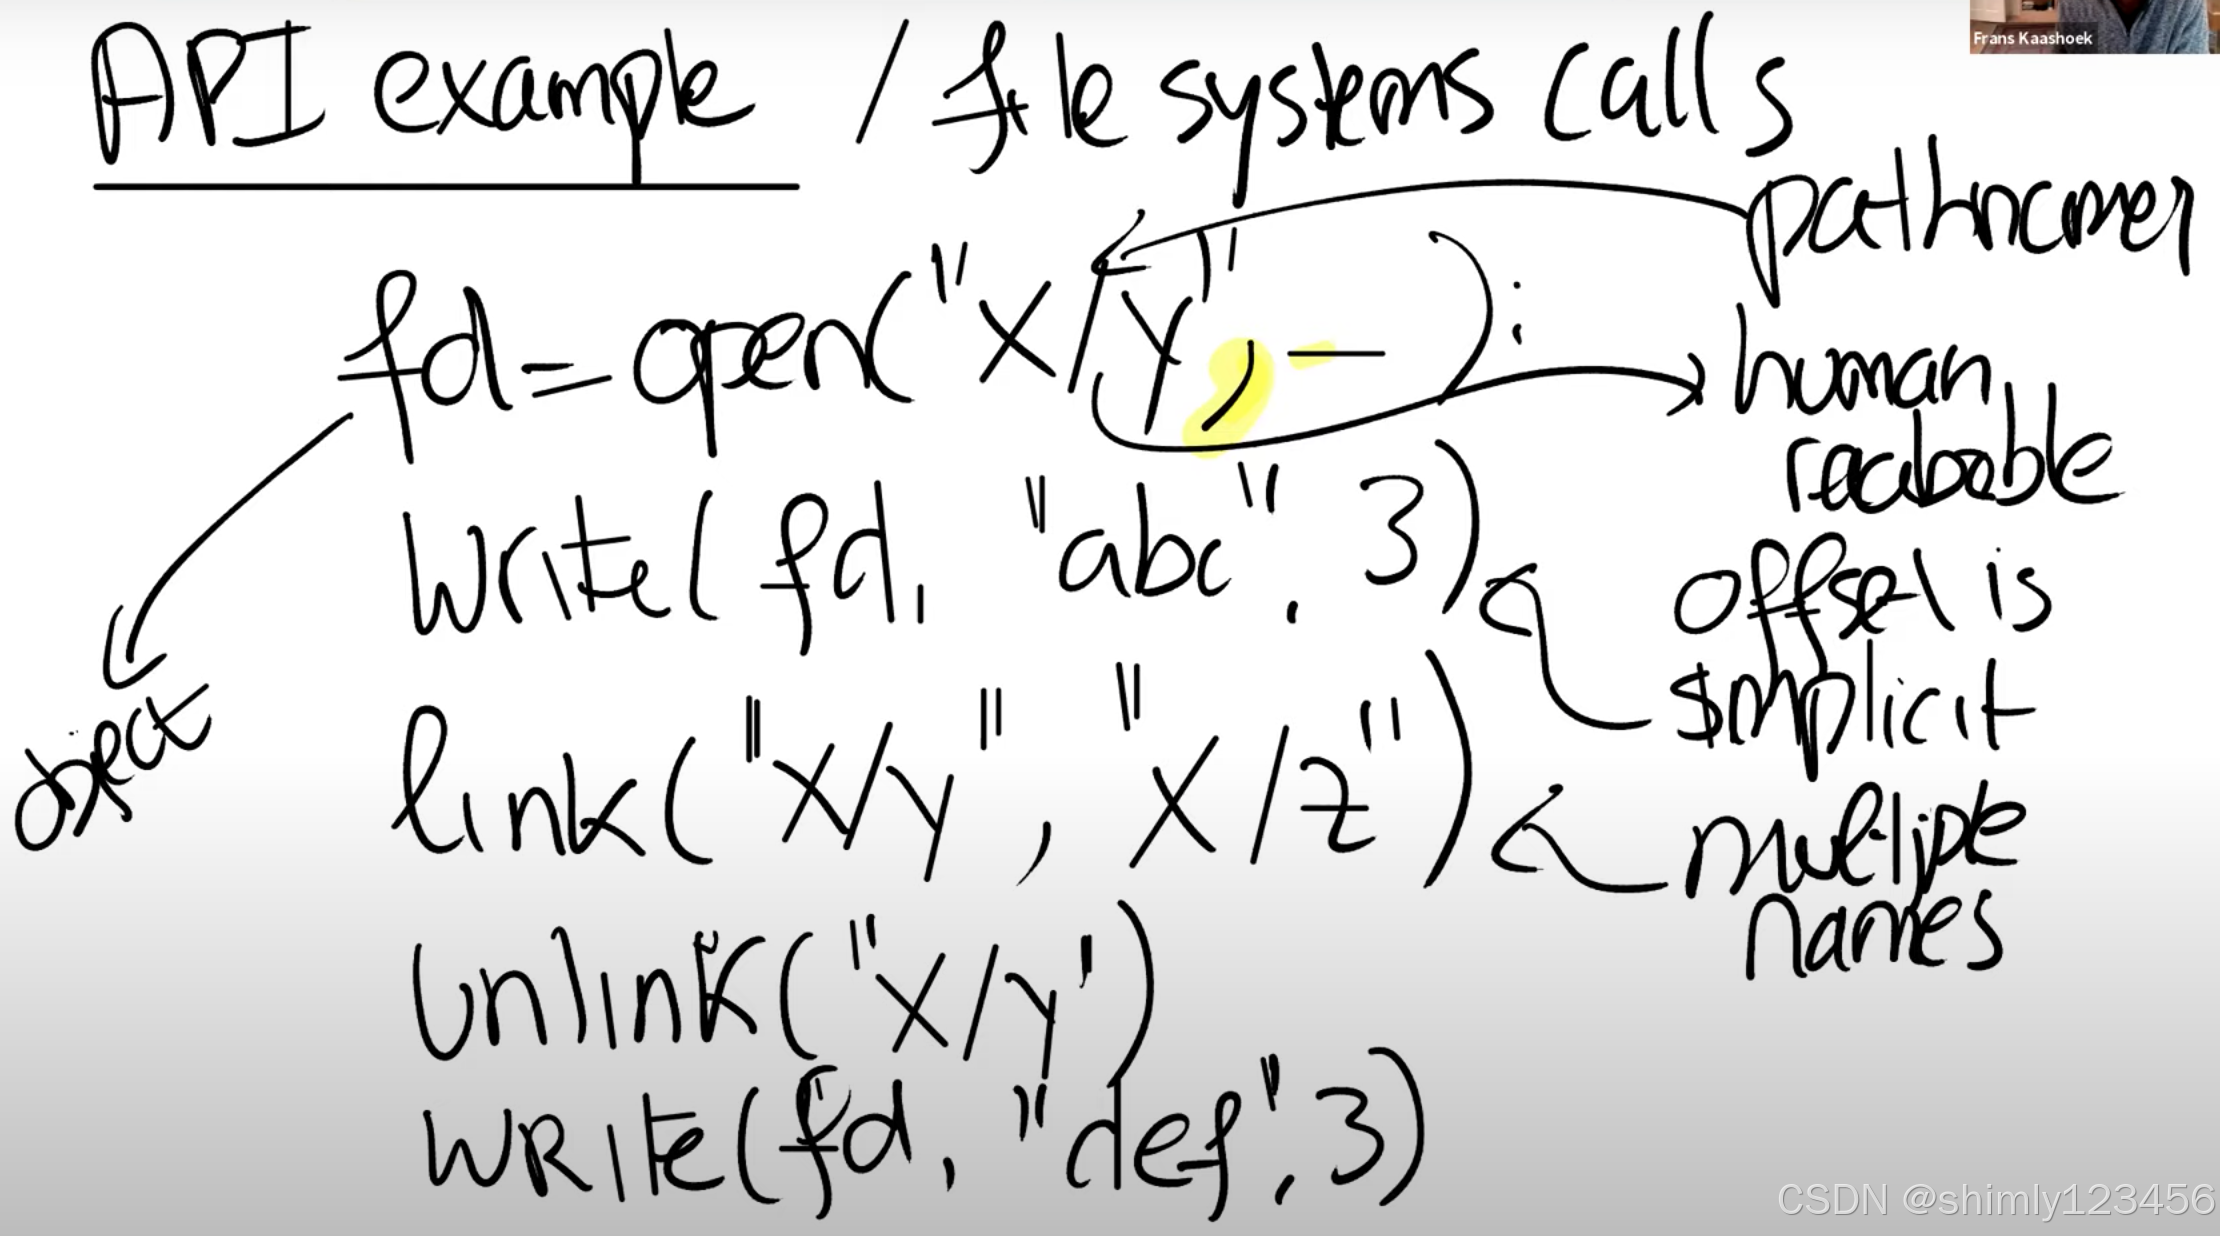 API example / file systems calls
Frans Kaashoek
pathnames
fd=open("x/y", — );
human
readable
write(fd, "abc", 3)
offset is
implicit
object
link("x/y", "x/z")
multiple
names
unlink("x/y')
WRIte(fd, "def", 3)
CSDN @shimly123456